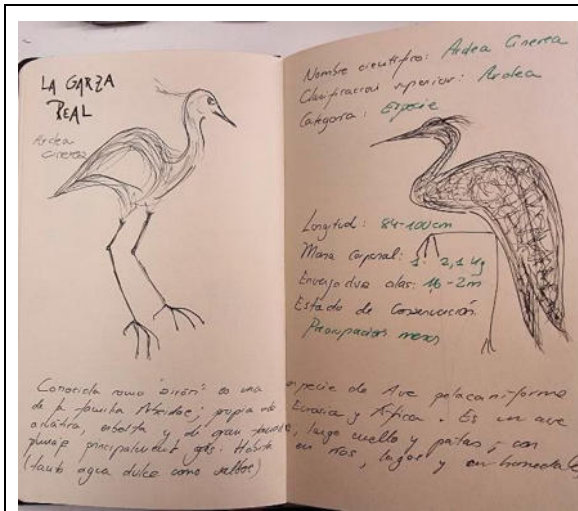 LA GARZA
REAL
Ardea
Cinerea
Nombre científico: Ardea Cinerea
Clasificación superior: Ardea
Categoría: Especie
Longitud: 84-100cm
Masa corporal: 1- 2,1 Kg
Envergadura alas: 1,6-2m
Estado de Conservación
Preocupación menor
Conocida como "airón" es una especie de Ave pelecaniforme
de la familia Ardeidae; propia de Eurasia y África. Es un ave
acuática, esbelta y de gran tamaño, largo cuello y patas, con
plumaje principalmente gris. Habita en ríos, lagos y en humedales
(tanto agua dulce como)